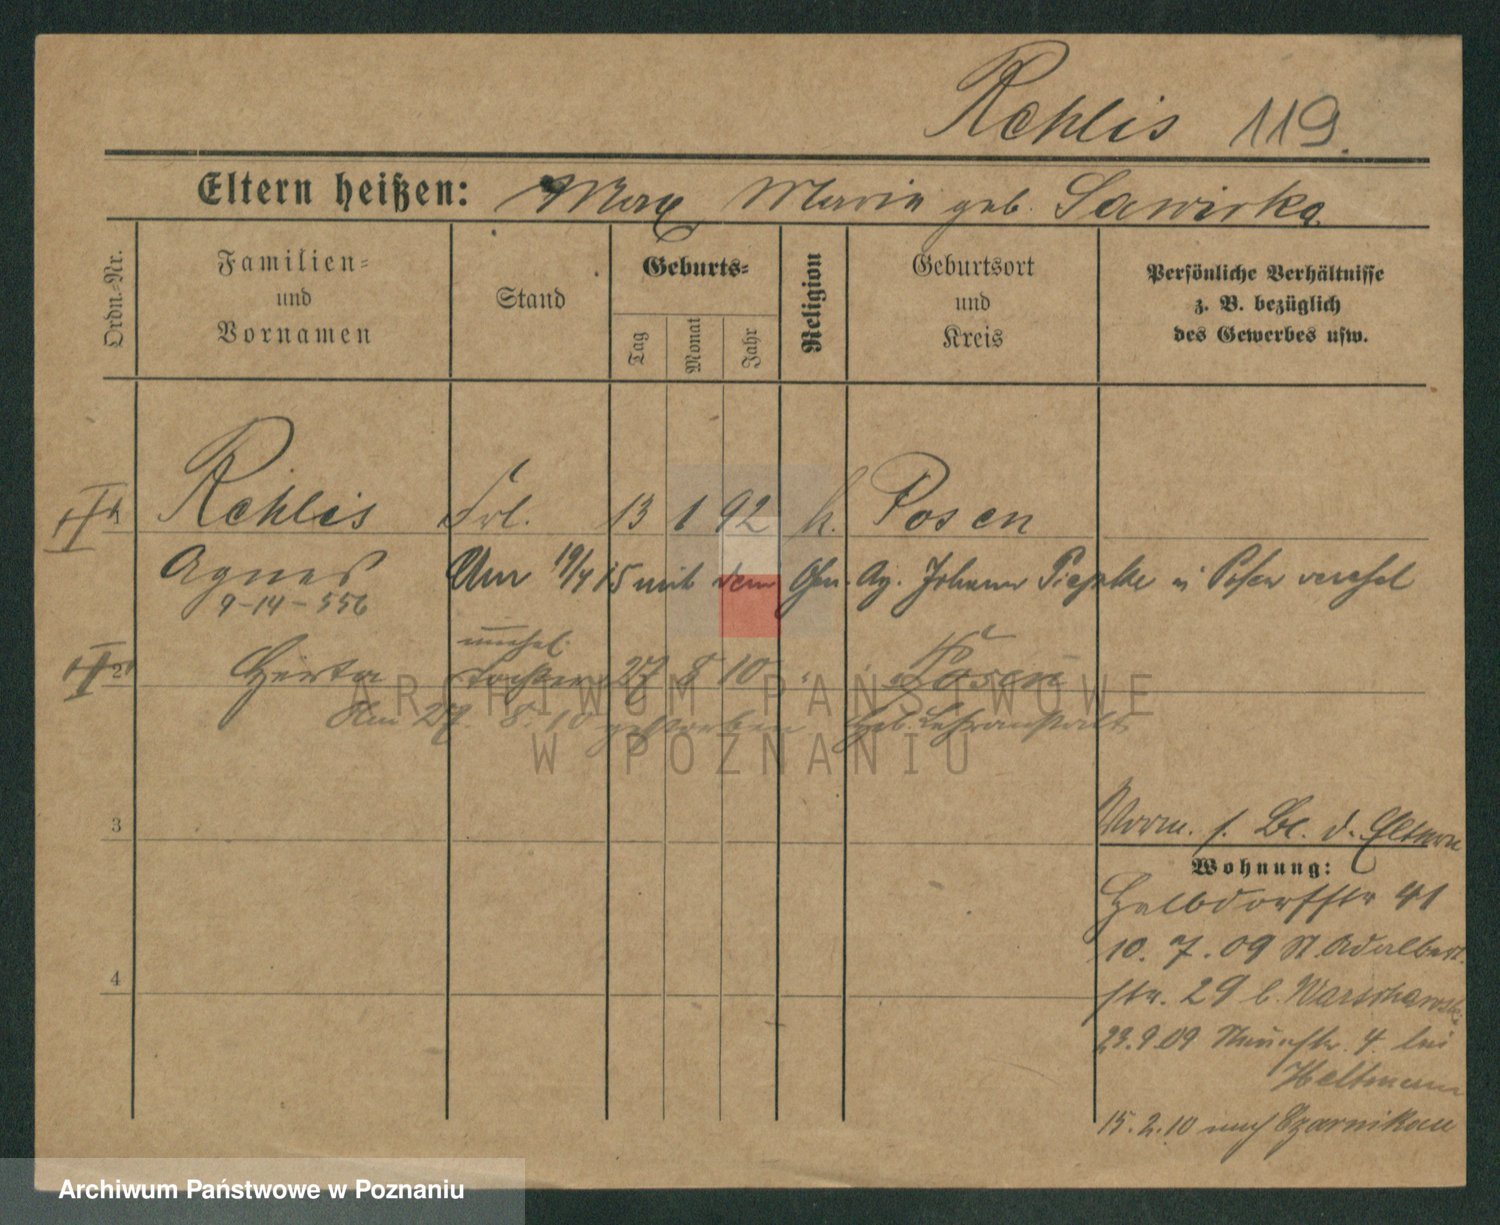 Rehlis 119.
Eltern heißen: Max Maria geb. Sawirka
Ordn.-Nr.
Familien-
und
Vornamen
Stand
Geburts-
Tag
Monat
Jahr
Religion
Geburtsort
und
Kreis
Persönliche Verhältnisse
z. B. bezüglich
des Gewerbes usw.
Rehlis Frl. 13 1 92 k. Posen
Agnes Am 19/4 15 mit dem Johann in Posen verehel
9-14-556
unehel.
2 Herta Tochter 27 8 10 Posen
Am 27. 8. 10 gestorben Heb. Lehranstalt
3
Vorm. s. Bl. d. Eltern
Wohnung:
Halbdorfstr 41
10. 7. 09 St. Adalbert
str. 29 b. Warschawski
4
23.9.09 4. bei
Heltmann
15.2.10 nach Czarnikau
ARCHIWUM PAŃSTWOWE
W POZNANIU
Archiwum Państwowe w Poznaniu